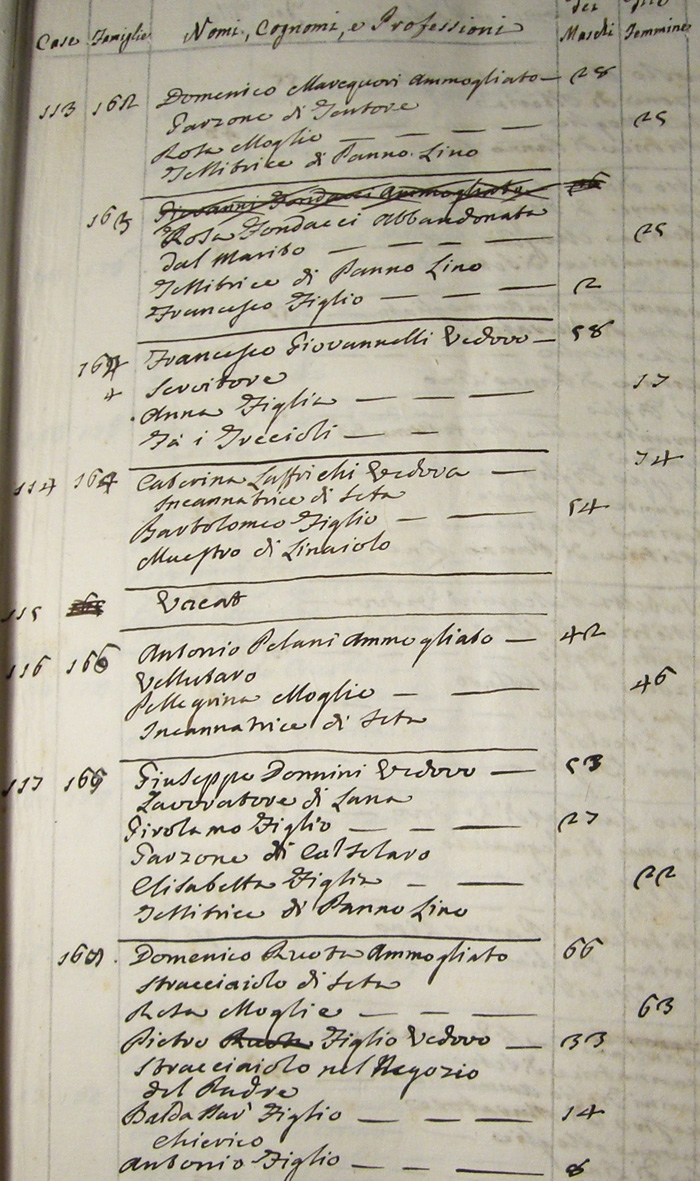 Case Famiglie Nomi, Cognomi, e Professioni dei Maschi delle Femmine
113 162 Domenico Marcquori Ammogliato — 28
Garzone di Tentore
Rosa Moglie — — — 25
Tessitrice di Panno Lino
163 Giovanni Fondacci Ammogliato
Rosa Fondacci Abbandonata
dal Marito — — — 25
Tessitrice di Panno Lino
Francesco Figlio — — — 2
164 Francesco Giovannelli Vedovo — 58
4 Servitore
Anna Figlia — — — 17
Fà i Treccioli — — —
114 164 Caterina Laffrichi Vedova — 74
Incannatrice di Seta
Bartolomeo Figlio — — 54
Maestro di Linaiolo
115 Vacat
116 166 Antonio Pelani Ammogliato — 42
Vellutaro
Pellegrina Moglie — — 46
Incannatrice di Seta
117 166 Giuseppe Donnini Vedovo — 53
Lavoratore di Lana
Girolamo Figlio — — — 27
Garzone di Calsolaro
Elisabetta Figlia — — 22
Tessitrice di Panno Lino
Domenico Ammogliato 66
Stracciaiolo di Seta
Rosa Moglie — — — 63
Pietro Figlio Vedovo — 33
Stracciaiolo nel Negozio
del Padre
Baldassar Figlio — — — 14
Chierico
Antonio Figlio — — — 8